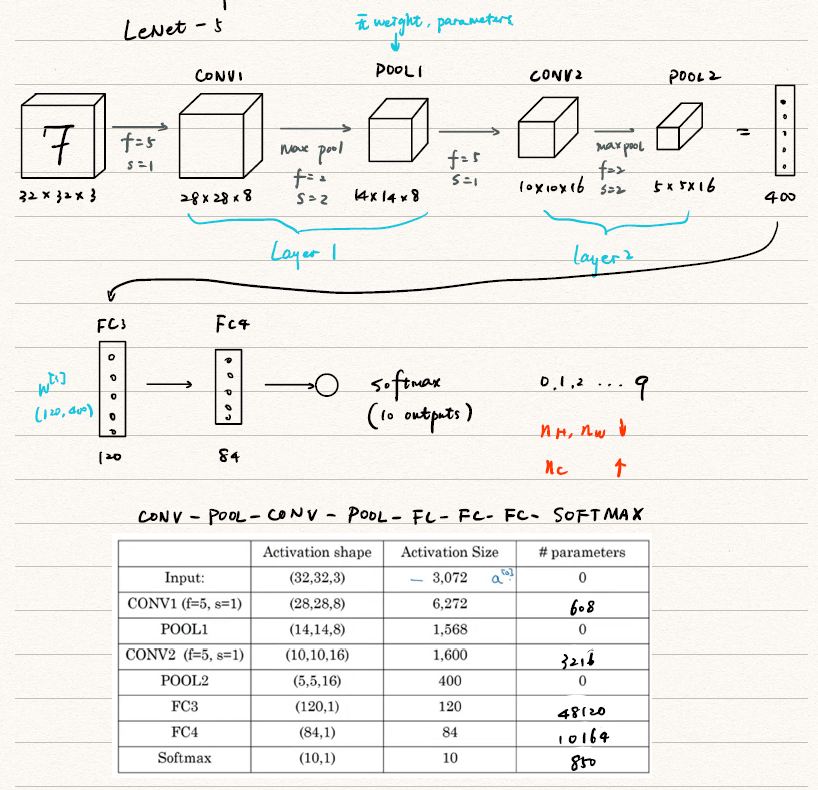 LeNet - 5
无 weight, parameters
CONV1 POOL1 CONV2 POOL2
7
f=5
s=1
Max pool
f=2
s=2
f=5
s=1
maxpool
f=2
s=2
=
32×32×3 28×28×8 14×14×8 10×10×16 5×5×16 400
Layer 1 Layer 2
FC3 FC4
W[1]
(120,400)
softmax
(10 outputs)
0,1,2 ... 9
nH, nW ↓
nC ↑
120 84
CONV - POOL - CONV - POOL - FC - FC - FC - SOFTMAX
Activation shape Activation Size # parameters
Input: (32,32,3) — 3,072 a[0] 0
CONV1 (f=5, s=1) (28,28,8) 6,272 608
POOL1 (14,14,8) 1,568 0
CONV2 (f=5, s=1) (10,10,16) 1,600 3216
POOL2 (5,5,16) 400 0
FC3 (120,1) 120 48120
FC4 (84,1) 84 10164
Softmax (10,1) 10 850